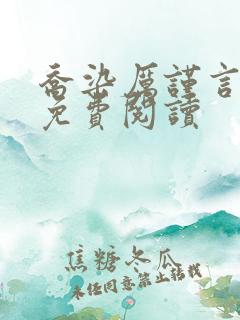 喬染厲謹言
免費閱讀
焦糖冬瓜
未经同意禁止转载